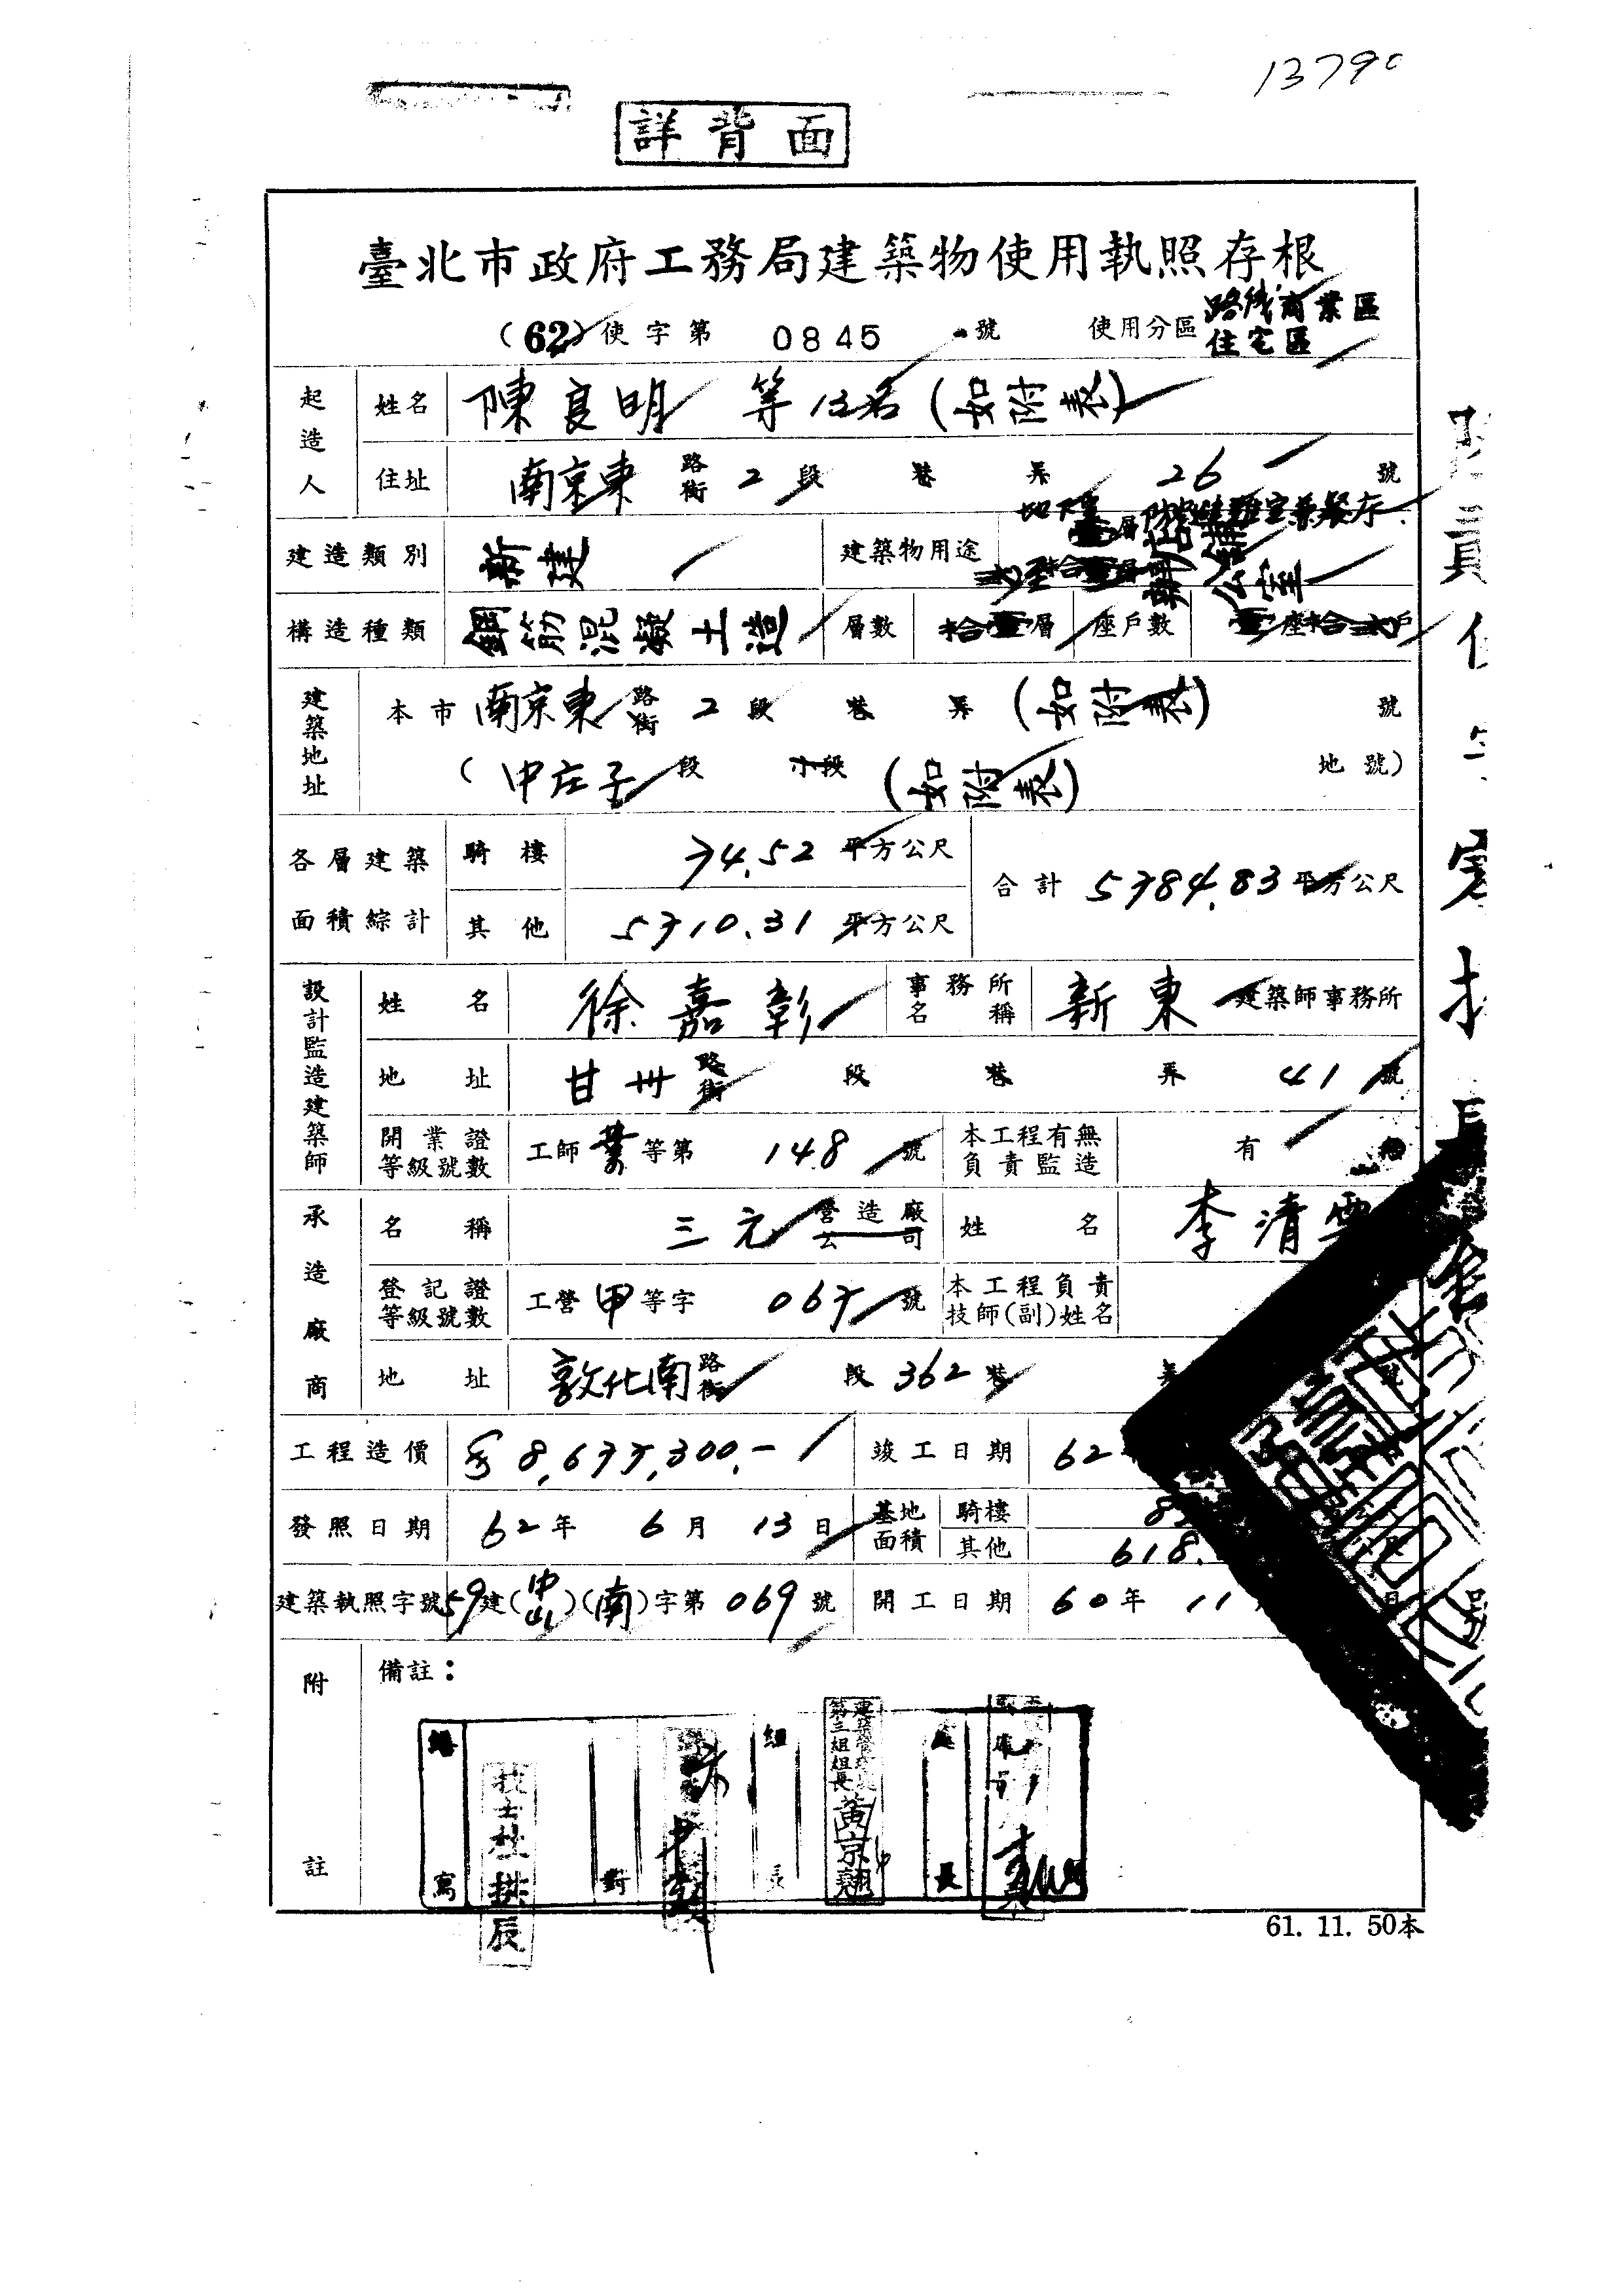 13790
詳背面
臺北市政府工務局建築物使用執照存根
(62)使字第 0845 號 使用分區 路线商業區
住宅區
起造人 姓名 陳良明 等13名(如附表)
住址 南京東 路街 2 段 巷 弄 26 號
建造類別 新建 建築物用途
店舖
公室
構造種類 鋼筋混凝土造 層數 拾壹層 座戶數 壹座 戶
建築地址 本市 南京東 路街 2 段 巷 弄 (如附表) 號
(中庄子 段 小段 (如附表) 地號)
各層建築面積綜計 騎樓 74.52 平方公尺 合計 5784.83 平方公尺
其他 5710.31 平方公尺
設計監造建築師 姓名 徐嘉彰 事務所名稱 新東 建築師事務所
地址 甘州 路街 段 巷 弄 41 號
開業證等級號數 工師 業 等第 148 號 本工程有無負責監造 有
承造廠商 名稱 三元 營造廠公司 姓名 李清
登記證等級號數 工營 甲 等字 067 號 本工程負責技師(副)姓名
地址 敦化南 路街 段 362 巷
工程造價 8,677,300.- 竣工日期 62
發照日期 62年 6月 13日 基地面積 騎樓 8
其他 618.
建築執照字號 59建(中山)(南)字第 069 號 開工日期 60年 11
附註 備註：
繕寫 技士杜拱辰 對 朱 組長 第三組組長 黃京翹 長
61. 11. 50本